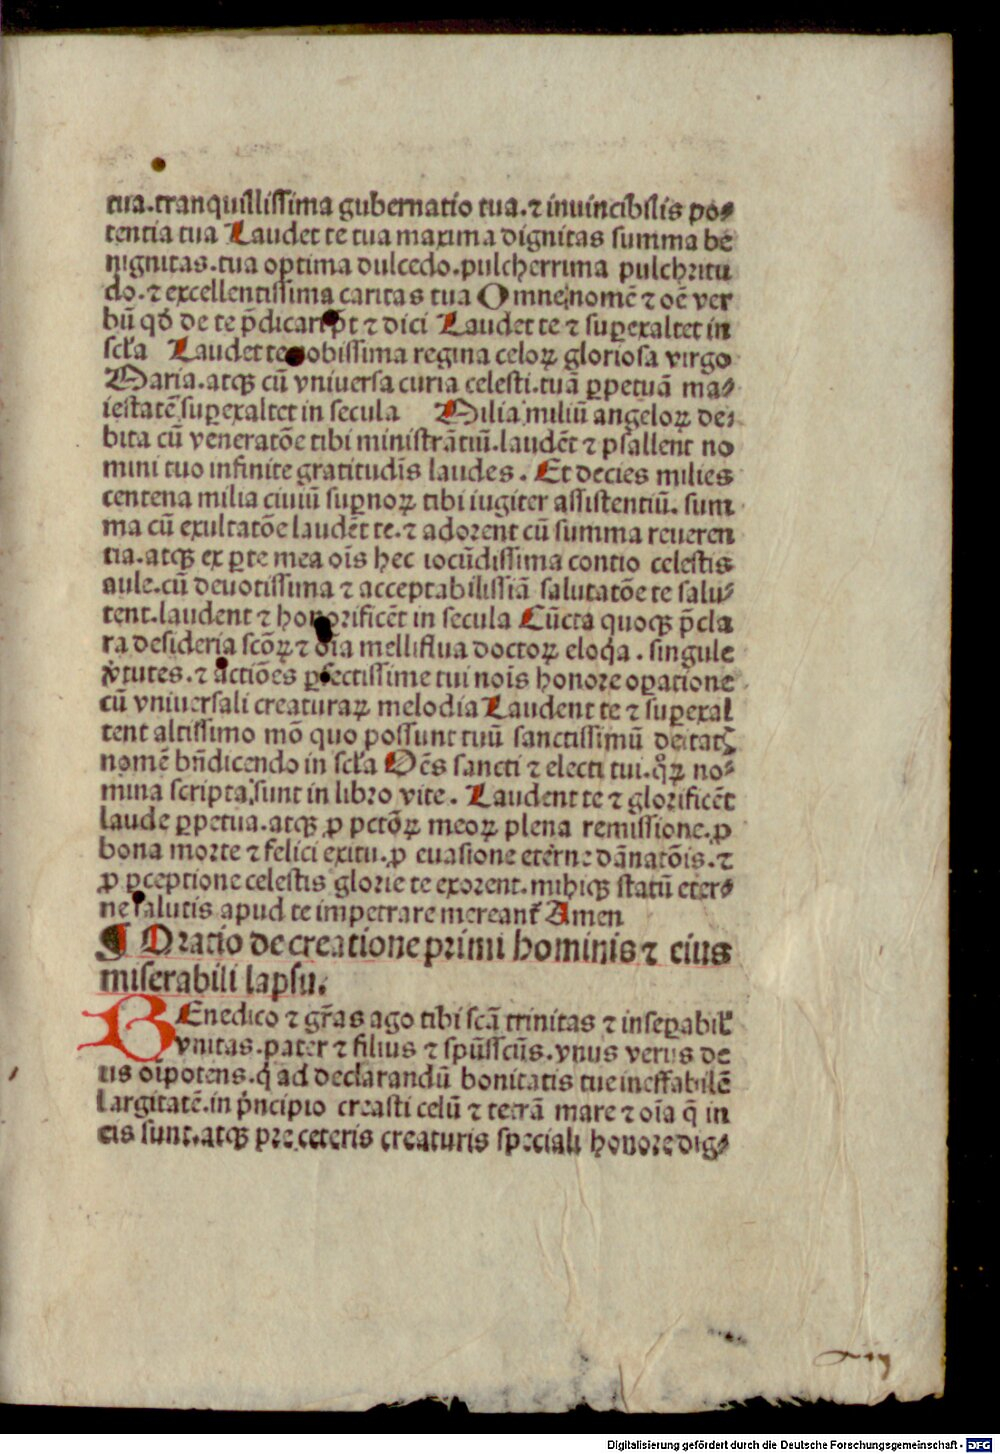 tua.tranquillissima gubernatio tua.⁊ inuincibilis po⸗
tentia tua Laudet te tua maxima dignitas summa be
nignitas.tua optima dulcedo.pulcherrima pulchritu
do.⁊ excellentissima caritas tua Omne nomē ⁊ oē ver
bū qđ de te p̄dicari pōt ⁊ dici Laudet te ⁊ suꝑexaltet in
scła Laudet te nobissima regina celoꝝ gloriosa virgo
Maria.atqꝫ cū vniuersa curia celesti.tuā ꝑpetuā ma⸗
iestatē suꝑexaltet in secula Milia miliū angeloꝝ de⸗
bita cū veneratōe tibi ministrātiū.laudēt ⁊ psallent no
mini tuo infinite gratitudīs laudes. Et decies milies
centena milia ciuiū suꝑnoꝝ tibi iugiter assistentiū. sum
ma cū exultatōe laudēt te.⁊ adorent cū summa reueren
tia.atqꝫ ex ꝑte mea oīs hec iocūdissima contio celestis
aule.cū deuotissima ⁊ acceptabilissiā salutatōe te salu⸗
tent.laudent ⁊ honorificēt in secula Cūcta quoqꝫ p̄cla
ra desideria scōꝝ ⁊ oīa melliflua doctoꝝ eloq̄a. singule
v̓tutes.⁊ actiōes ꝑfectissime tui noīs honore oꝑatione
cū vniuersali creaturaꝝ melodia Laudent te ⁊ suꝑexal
tent altissimo mō quo possunt tuū sanctissimū deitatꝭ
nomē bn̄dicendo in scła Oēs sancti ⁊ electi tui.qͦꝝ no⸗
mina scripta sunt in libro vite. Laudent te ⁊ glorificēt
laude ꝑpetua.atqꝫ ꝓ pctōꝝ meoꝝ plena remissione.ꝓ
bona morte ⁊ felici exitu.ꝓ euasione eterne dānatōis.⁊
ꝓ ꝑceptione celestis glorie te exorent.mihiqꝫ statū eter⸗
ne salutis apud te impetrare mereant᷑ Amen
¶ Oratio de creatione primi hominis ⁊ eius
miserabili lapsu.
BEnedico ⁊ gr̄as ago tibi scā trinitas ⁊ inseꝑabil̓
vnitas.pater ⁊ filius ⁊ spūsscūs.vnus verus de
us oīpotens.q̓ ad declarandū bonitatis tue ineffabilē
largitatē.in p̓ncipio creasti celū ⁊ terrā mare ⁊ oīa q̄ in
eis sunt.atqꝫ pre ceteris creaturis speciali honore dig⸗
Digitalisierung gefördert durch die Deutsche Forschungsgemeinschaft - DFG